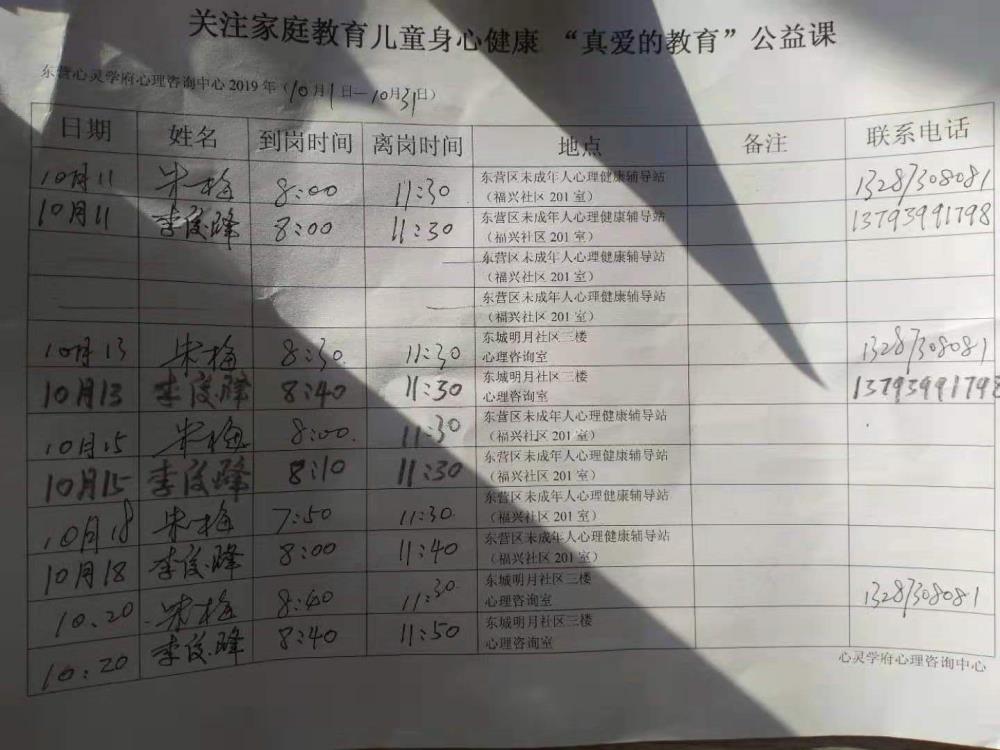 关注家庭教育儿童身心健康 “真爱的教育”公益课
东营心灵学府心理咨询中心 2019 年（10月1日—10月31日）
日期 姓名 到岗时间 离岗时间 地点 备注 联系电话
10月11 朱梅 8:00 11:30 东营区未成年人心理健康辅导站 13287308081
（福兴社区 201 室）
10月11 李俊峰 8:00 11:30 东营区未成年人心理健康辅导站 13793991798
（福兴社区 201 室）
东营区未成年人心理健康辅导站
（福兴社区 201 室）
东营区未成年人心理健康辅导站
（福兴社区 201 室）
10月13 朱梅 8:30 11:30 东城明月社区三楼 13287308081
心理咨询室
10月13 李俊峰 8:40 11:30 东城明月社区三楼 13793991798
心理咨询室
10月15 朱梅 8:00 11:30 东营区未成年人心理健康辅导站
（福兴社区 201 室）
10月15 李俊峰 8:10 11:30 东营区未成年人心理健康辅导站
（福兴社区 201 室）
10月18 朱梅 7:50 11:30 东营区未成年人心理健康辅导站
（福兴社区 201 室）
10月18 李俊峰 8:00 11:40 东营区未成年人心理健康辅导站
（福兴社区 201 室）
10.20 朱梅 8:40 11:30 东城明月社区三楼 13287308081
心理咨询室
10:20 李俊峰 8:40 11:50 东城明月社区三楼
心理咨询室
心灵学府心理咨询中心